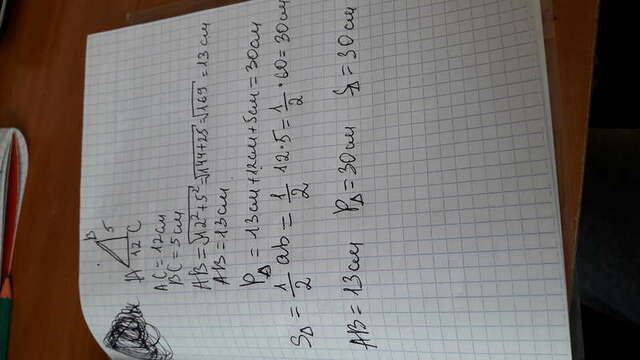 B
5
A 12 C
AC=12см
BC=5см
AB=√12²+5²=√144+25=√169=13см
AB=13см
P∆=13см+12см+5см=30см
S∆=1/2ab=1/2 12·5=1/2·60=30см
AB=13см P∆=30см S∆=30см